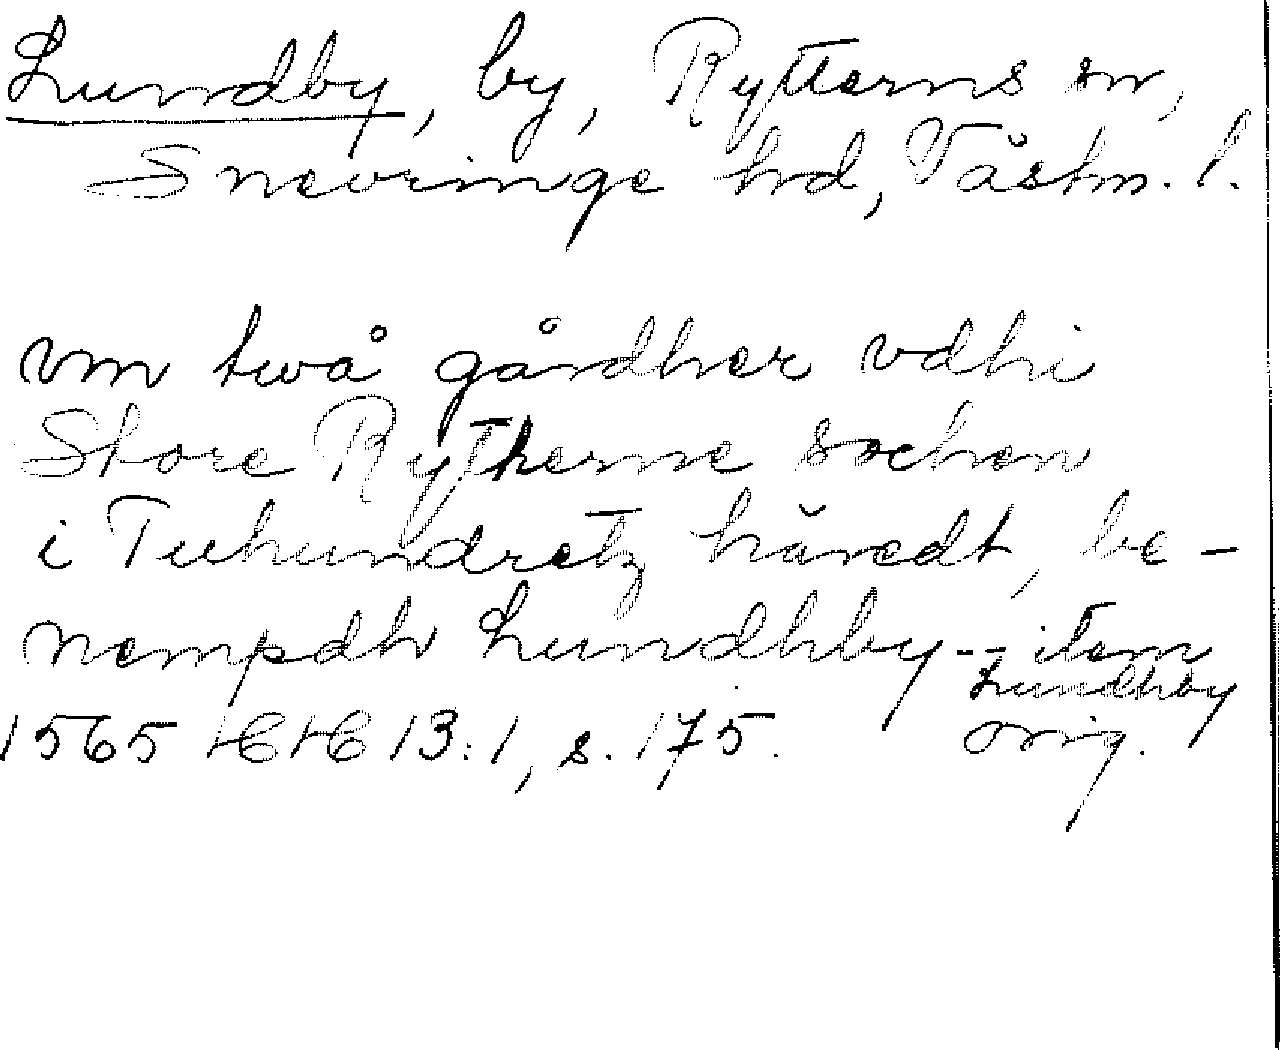 Lundby, by, Rytterns sn,
Snevringe hd, Västm. l.
vm twå gårdher vdhi
Store Rytherne sochen
i Tuhundretz häredt, be-
nempdh Lundhby -- item
Lundhby
1565 HH 13:1, s. 175. orig.